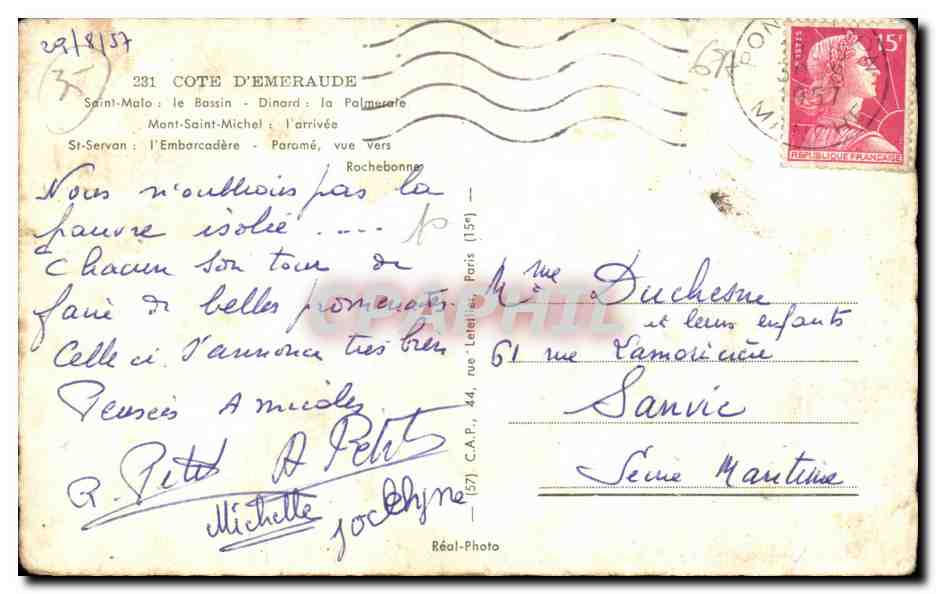 29/8/57
35
231 COTE D'EMERAUDE
Saint-Malo : le Bassin - Dinard : la Palmeraie
Mont-Saint-Michel : l'arrivée
St-Servan : l'Embarcadère - Paramé, vue vers
Rochebonne
Nous n'oublions pas la
pauvre isolée .....
Chacun son tour de
faire de belles promenades.
Celle ci s'annonce très bien
Pensées Amicales
R. Petit A Petit
Michelle Jocelyne
Réal-Photo
(57) C.A.P., 44, rue Letellier, Paris (15e)
CPAPHIL
POSTES
15F
REPUBLIQUE FRANÇAISE
PON
1957
M. Mme Duchesne
et leurs enfants
61 rue Lamoricière
Sanvic
Seine Maritime